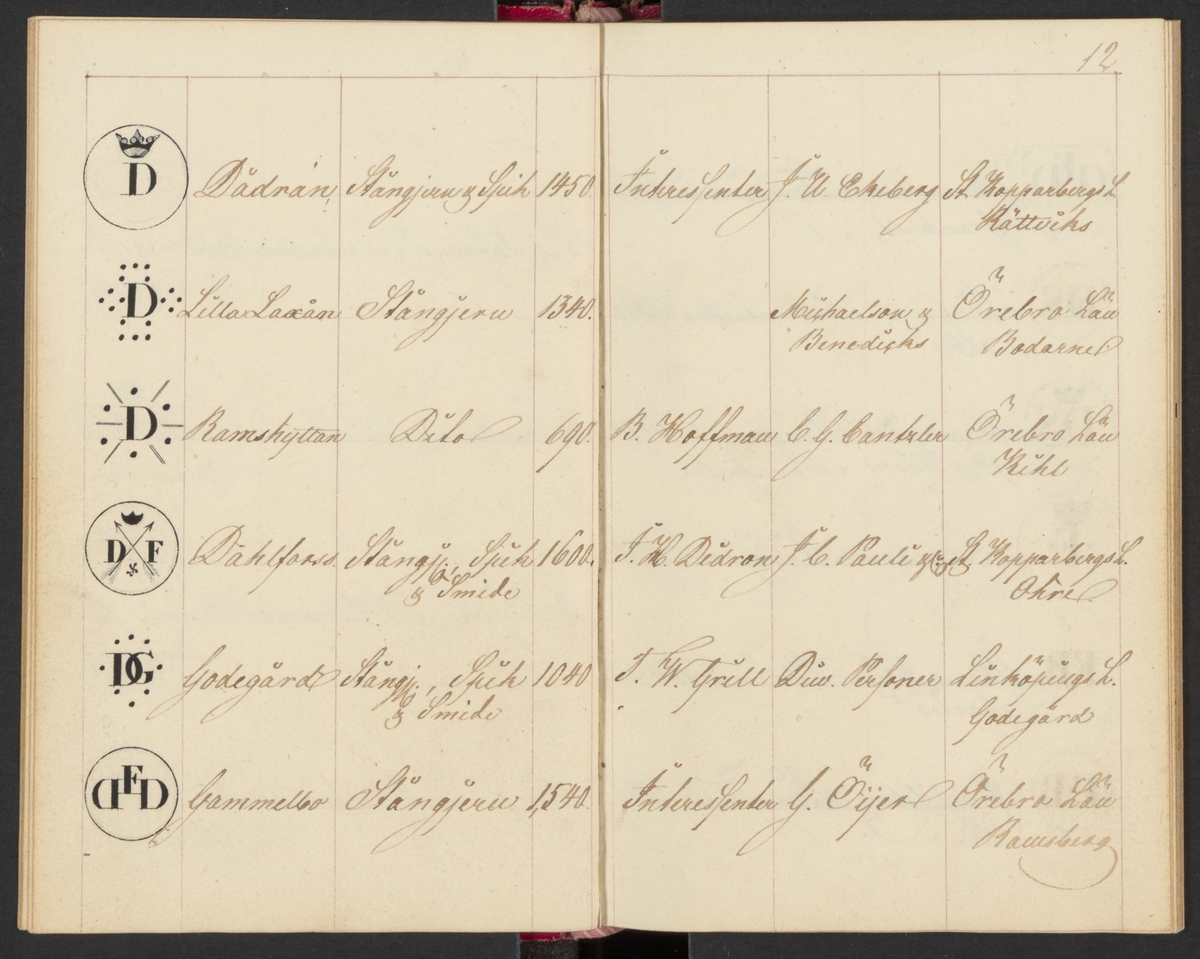 12
D Dådrån, Stångjern & Spik 1450. Interessenter J. U. Ekeberg St. Kopparbergs L.
Rättviks
D Lilla Laxån Stångjern 1340. Michaelson & Örebro Län
Benedicks Bodarne
D Ramshyttan Dito 690. B. Hoffman C. G. Cantzler Örebro Län
Kihl
D F Dahlforss. Stångj., Spik 1600. J. H. Dedron J. C. Pauli St. Kopparbergs L.
& Smide Ohre
DG Godegård Stångj., Spik 1040 J. W. Grill Div. Personer Linköpings L.
& Smide Godegård
DFD Gammelbo Stångjern 1,540. Interessenter G. Öijer Örebro Län
Ramsberg